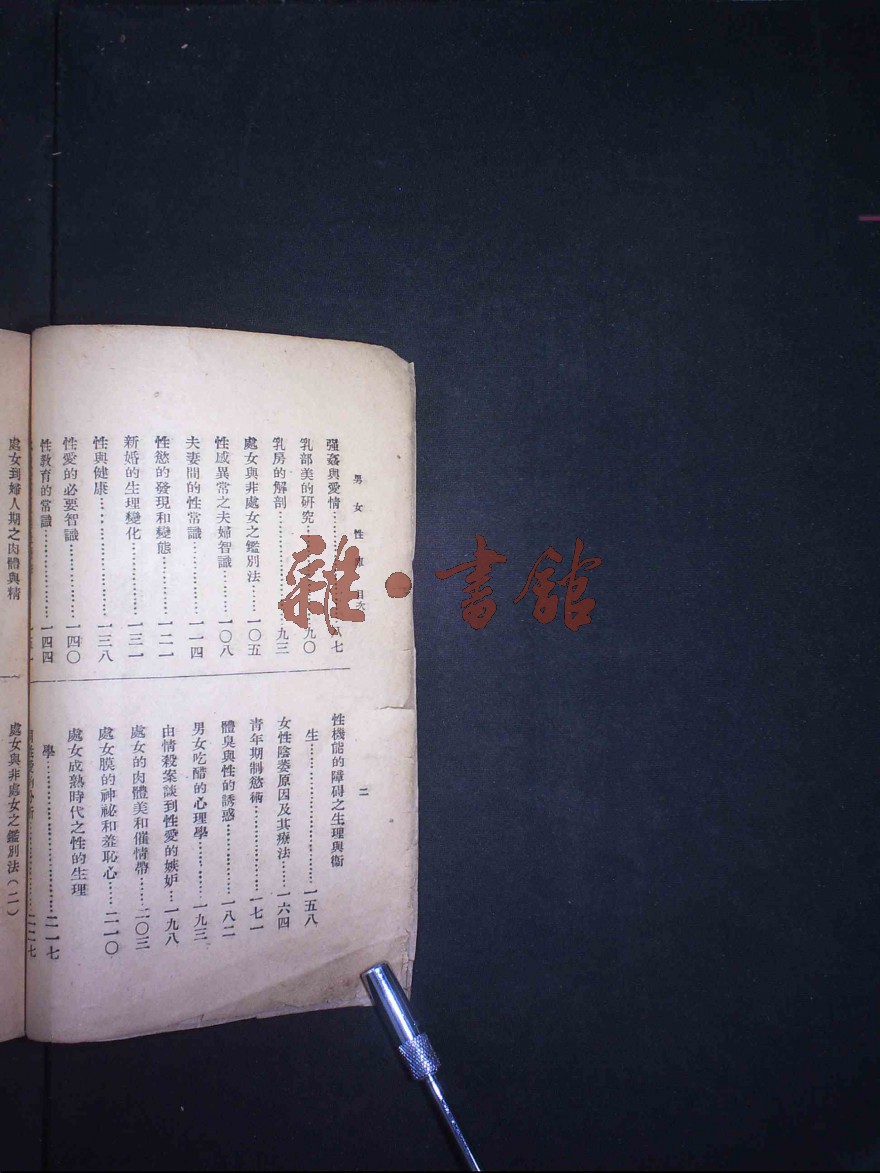 男女性庫 目次
二
強姦與愛情……八七
乳部美的研究……九〇
乳房的解剖……九三
處女與非處女之鑑別法……一〇五
性感異常之夫婦智識……一〇八
夫妻間的性常識……一一四
性慾的發現和變態……一二一
新婚的生理變化……一三一
性與健康……一三八
性愛的必要智識……一四〇
性教育的常識……一四四
性機能的障碍之生理與衛
生……一五八
女性陰萎原因及其療法……一六四
青年期制慾術……一七一
體臭與性的誘惑……一八二
男女吃醋的心理學……一九三
由情殺案談到性愛的嫉妒……一九八
處女的肉體美和催情帶……二〇三
處女膜的神祕和羞恥心……二一〇
處女成熟時代之性的生理
學……二一七
二二七
處女到婦人期之肉體與精
處女與非處女之鑑別法(二)
雜·書館